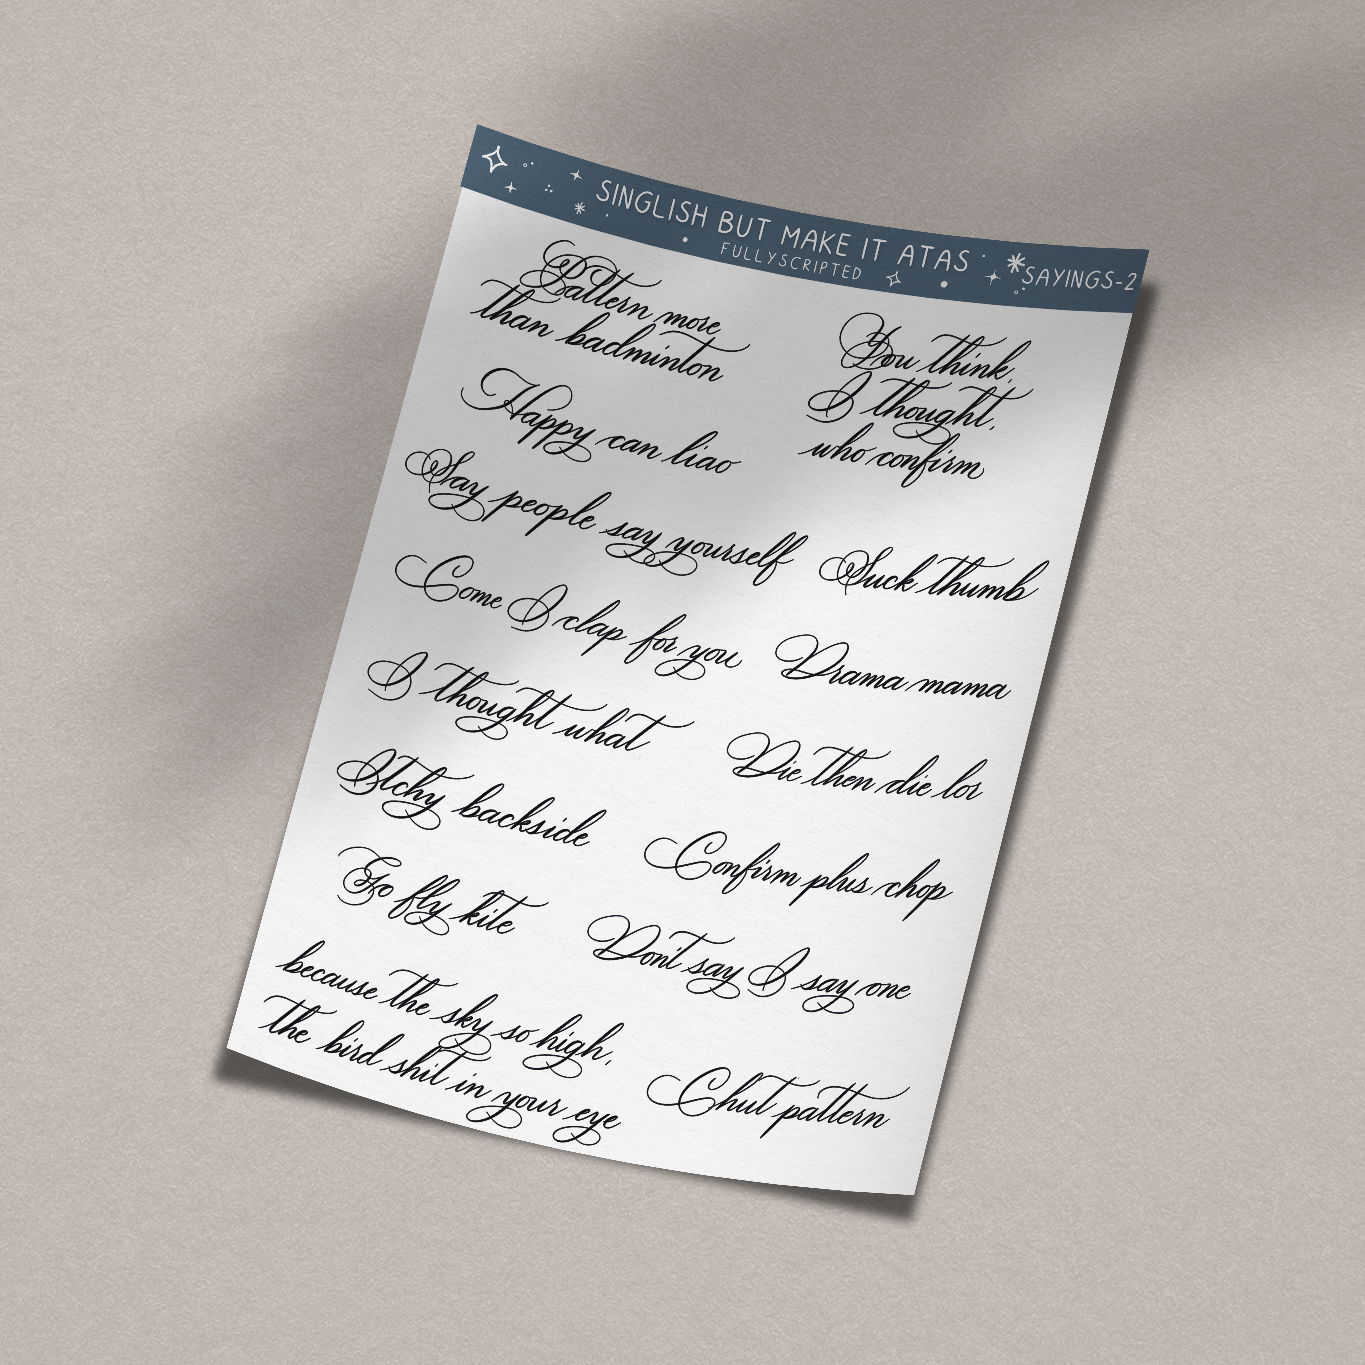 SINGLISH BUT MAKE IT ATAS
FULLYSCRIPTED
SAYINGS-2
Pattern more
than badminton
You think,
I thought,
who confirm
Happy can liao
Say people say yourself
Suck thumb
Come I clap for you
Drama mama
I thought what
Die then die lor
Itchy backside
Confirm plus chop
Go fly kite
Don't say I say one
because the sky so high,
the bird shit in your eye
Chut pattern